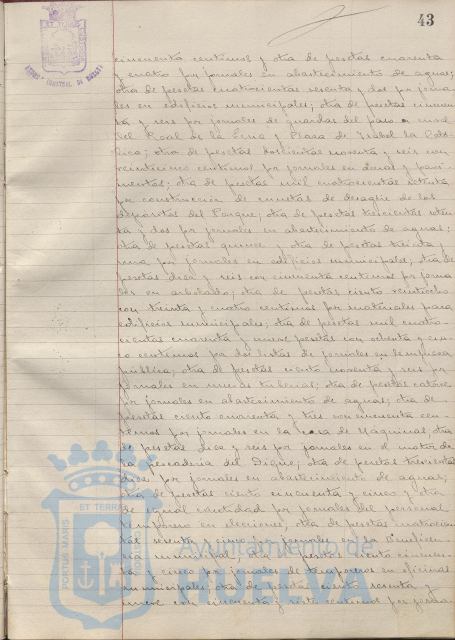 43
cincuenta centimos y otra de pesetas cuarenta
y cuatro por jornales en abastecimiento de aguas;
otra de pesetas cuatrocientas sesenta y dos por jorna-
les en edificios municipales; otra de pesetas cincuen-
ta y seis por jornales de guardas del paseo
del Real de la Feria y Plaza de Isabel la Cató-
lica; otra de pesetas doscientas noventa y seis con
veinticinco centimos por jornales en
otra de pesetas mil cuatrocientas
por construcción de cunetas de desagüe de los
depósitos del Parque; otra de pesetas trescientas
y dos por jornales en abastecimiento de aguas;
otra de pesetas quince y otra de pesetas treinta y
una por jornales en edificios municipales; otra de
pesetas diez y seis con cincuenta centimos por jorna-
les en arbolado; otra de pesetas ciento veintiocho
con treinta y cuatro centimos por materiales para
edificios municipales; otra de pesetas mil cuatro-
cientas cuarenta y nueve pesetas con ochenta y cin-
co centimos por dos listas de jornales en limpieza
pública; otra de pesetas ciento noventa y seis por
jornales en otra de pesetas catorce
por jornales en abastecimiento de aguas; otra de
pesetas ciento cuarenta y tres con cincuenta cen-
timos por jornales en la Casa de Máquinas; otra
de pesetas diez y seis por jornales en el motor de
la Pescaderia del Dique; otra de pesetas trescientas
doce por jornales en abastecimiento de aguas;
otra de pesetas ciento cincuenta y cinco y otra
de igual cantidad por jornales del personal
temporero en elecciones; otra de pesetas cuatrocien-
tas setenta y cinco por jornales en la
municipal; otra de pesetas ciento cincuen-
ta y cinco por jornales de temporeros en oficinas
municipales; otra de pesetas ciento sesenta y
nueve con cincuenta y siete centimos por jorna-
ET TERRA
PORTUS MARIS
Ayuntamiento de
HUELVA